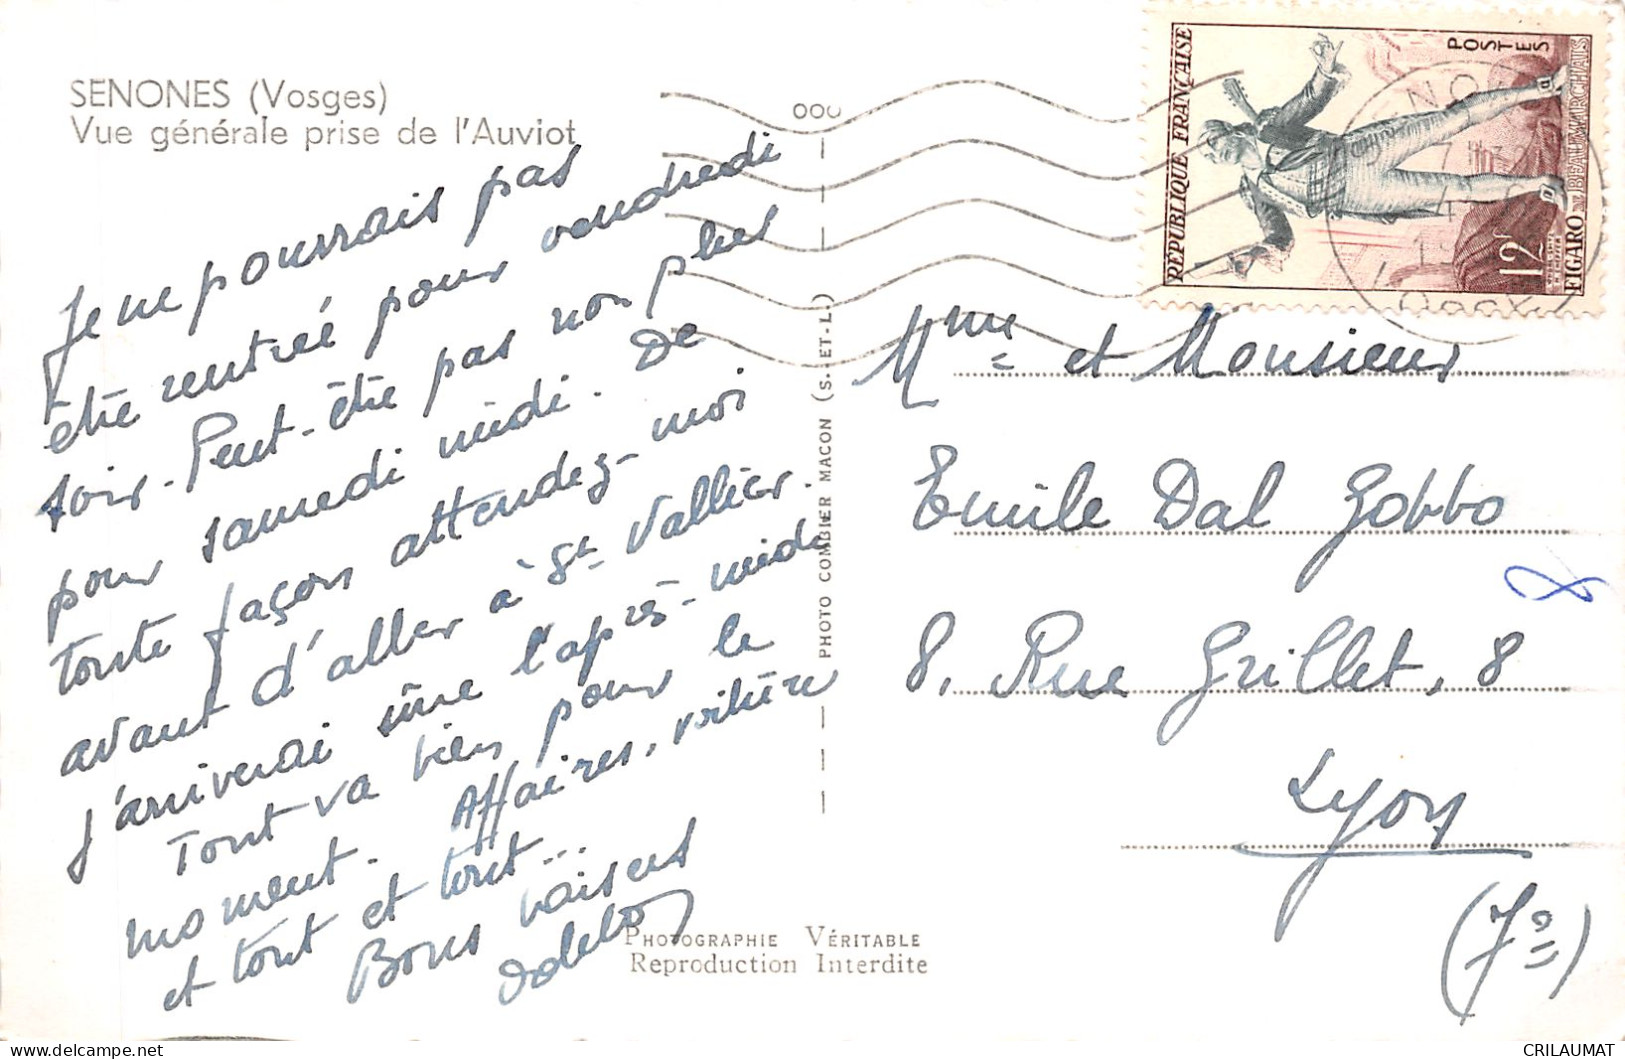 SENONES (Vosges)
Vue générale prise de l'Auviot
Je ne pourrais pas
être rentré pour vendredi
soir. Peut-être pas non plus
pour samedi midi. De
toute façon attendez-moi
avant d'aller à St Vallier.
J'arriverai sûre l'après-midi
Tout va bien pour le
moment. Affaires, voiture
et tout et tout...
Bons baisers
PHOTO COMBIER MACON (S.-ET-L.)
PHOTOGRAPHIE VÉRITABLE
Reproduction Interdite
RÉPUBLIQUE FRANÇAISE
POSTES
12F
FIGARO DE BEAUMARCHAIS
Mme et Monsieur
Emile Dal Gobbo
8, Rue Grillet, 8
Lyon
(7e)
CRILAUMAT